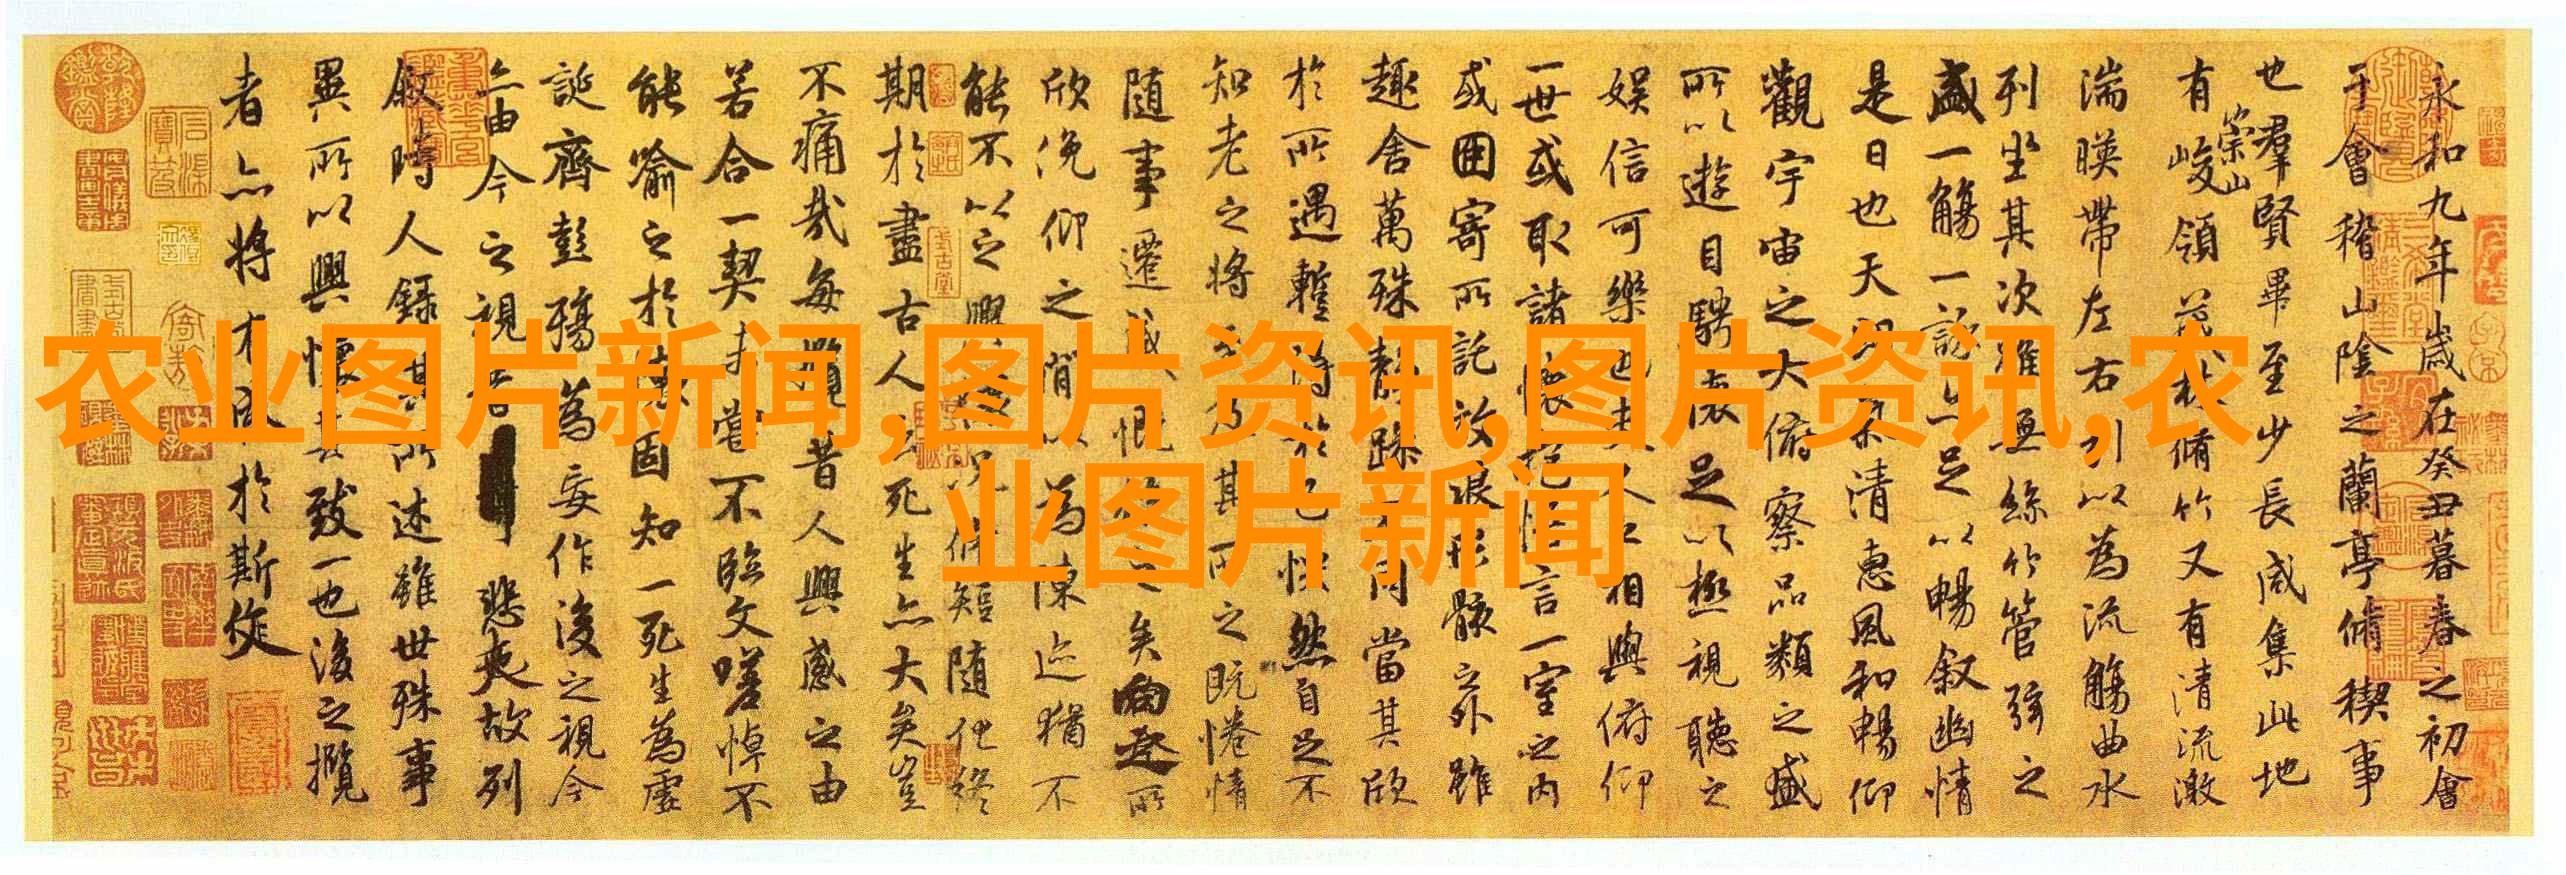 农业图片新闻,图片资讯,图片资讯,农
业图片新闻
永和九年歲在癸丑暮春之初會
于會稽山陰之蘭亭脩稧事
也羣賢畢至少長咸集此地
有崇山峻領茂林脩竹又有清流激
湍暎帶左右引以為流觴曲水
列坐其次雖無絲竹管弦之
盛一觴一詠亦足以暢敘幽情
是日也天朗氣清惠風和暢仰
觀宇宙之大俯察品類之盛
所以遊目騁懷足以極視聽之
娛信可樂也夫人之相與俯仰
一世或取諸懷抱悟言一室之內
或因寄所託放浪形骸之外雖
趣舍萬殊靜躁不同當其欣
於所遇蹔得於己怏然自足不
知老之將至及其所之既惓情
隨事遷感慨係之矣向之所
欣俛仰之閒以為陳迹猶不
能不以之興懷況脩短隨化終
期於盡古人云死生亦大矣豈
不痛哉每攬昔人興感之由
若合一契未嘗不臨文嗟悼不
能喻之於懷固知一死生為虛
誕齊彭殤為妄作後之視今
亦由今之視昔悲夫故列
敘時人錄其所述雖世殊事
異所以興懷其致一也後之攬
者亦將有感於斯文